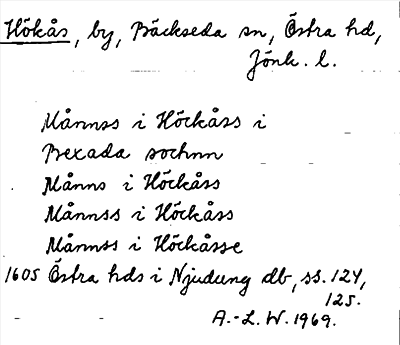 Hökås, by, Bäckseda sn, Östra hd,
Jönk. l.
Månnss i Höckåss i
Bexada sochnn
Månns i Höckåss
Månnss i Höckåss
Månnss i Höckåsse
1605 Östra hds i Njudung db, ss. 124,
125.
A.-L. W. 1969.